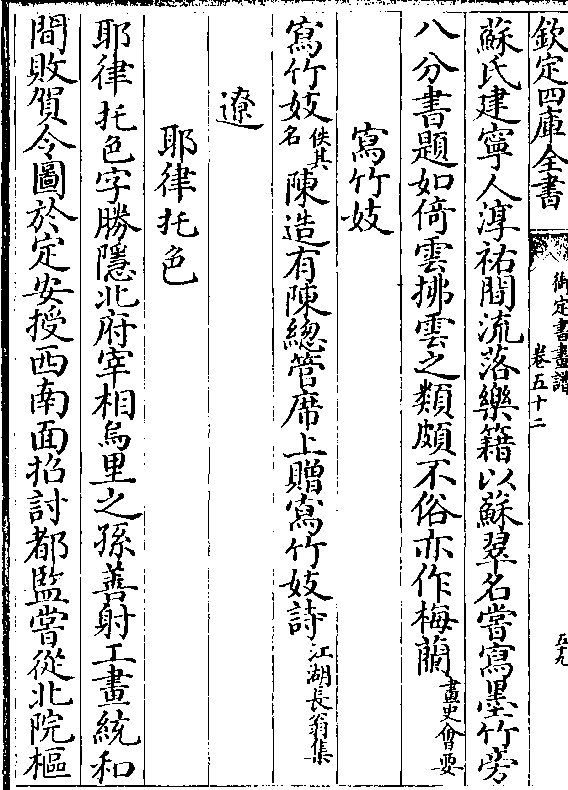 欽定四庫全書
御定書畫譜
卷五十二
五九
蘇氏建寧人淳祐間流落樂籍以蘇翠名嘗寫墨竹旁
八分書題如倚雲拂雲之類頗不俗亦作梅蘭畫史會要
寫竹妓
寫竹妓佚其名陳造有陳總管席上贈寫竹妓詩江湖長翁集
遼
耶律托色
耶律托色字勝隱北府宰相烏里之孫善射工畫統和
間敗賀令圖於定安授西南面招討都監嘗從北院樞